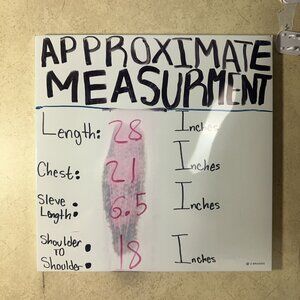 APPROXIMATE
MEASURMENT
Length: 28 Inches
Chest: 21 Inches
Sleve
Length: 6.5 Inches
Shoulder
TO
Shoulder: 18 Inches